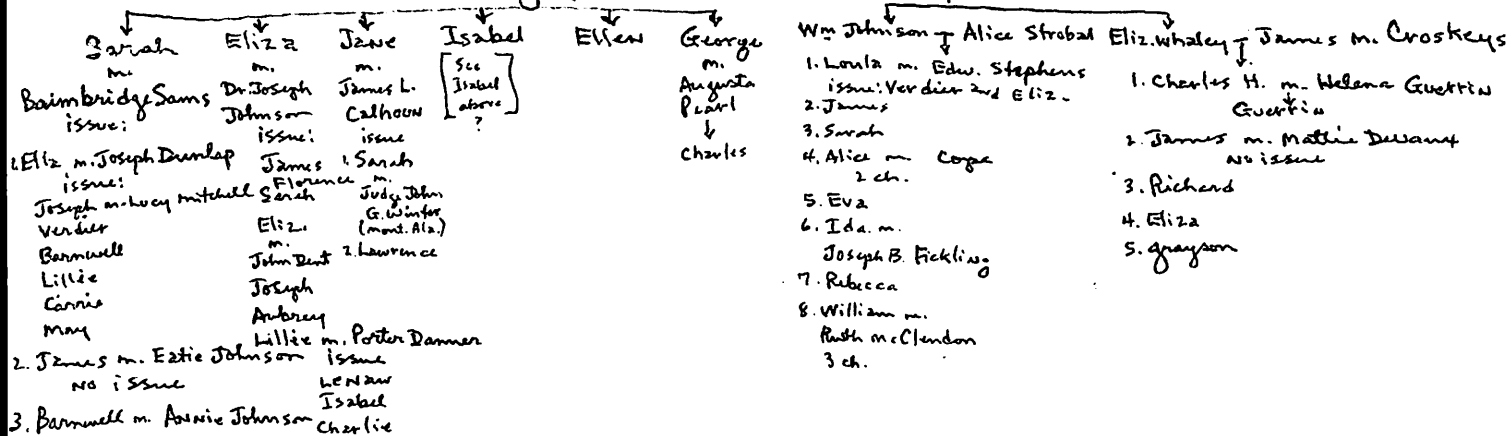 Sarah
m.
Baimbridge Sams
issue:
1. Eliz. m. Joseph Dunlap
issue:
Joseph m. Lucy Mitchell
Verdier
Barnwell
Lillie
Carrie
May
2. James m. Eatie Johnson
No issue
3. Barnwell m. Annie Johnson
Eliza
m.
Dr. Joseph
Johnson
issue:
James
Florence
Sarah
Eliz.
m.
John Dent
Joseph
Aubrey
Lillie m. Porter Danner
issue
LeNaw
Isabel
Charlie
Jane
m.
James L.
Calhoun
issue
1. Sarah
m.
Judge John
G. Winter
(mont. Ala.)
2. Lawrence
Isabel
[See
Isabel
above
?]
Ellen
George
m.
Augusta
Pearl
Charles
Wm Johnson - Alice Strobal
1. Loula m. Edw. Stephens
issue: Verdier and Eliz.
2. James
3. Sarah
4. Alice m. Cope
2 ch.
5. Eva
6. Ida. m.
Joseph B. Fickling
7. Rebecca
8. William m.
Ruth McClendon
3 ch.
Eliz. Whaley - James m. Croskeys
1. Charles H. m. Helena Guerrin
Guerrin
2. James m. Mattie Devaux
No issue
3. Richard
4. Eliza
5. Grayson